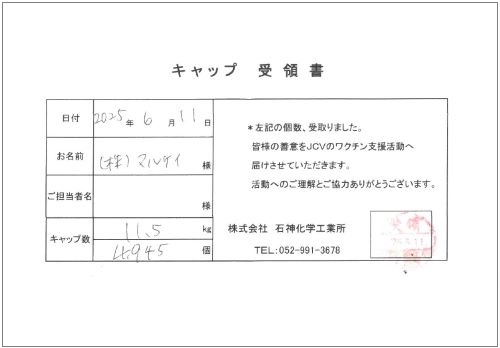 キャップ 受領書
日付 2025年 6月 11日
お名前 (株)マルケイ 様
ご担当者名 様
キャップ数 11.5 kg
4,945 個
＊左記の個数、受取りました。
皆様の善意をJCVのワクチン支援活動へ
届けさせていただきます。
活動へのご理解とご協力ありがとうございます。
株式会社 石神化学工業所
TEL:052-991-3678